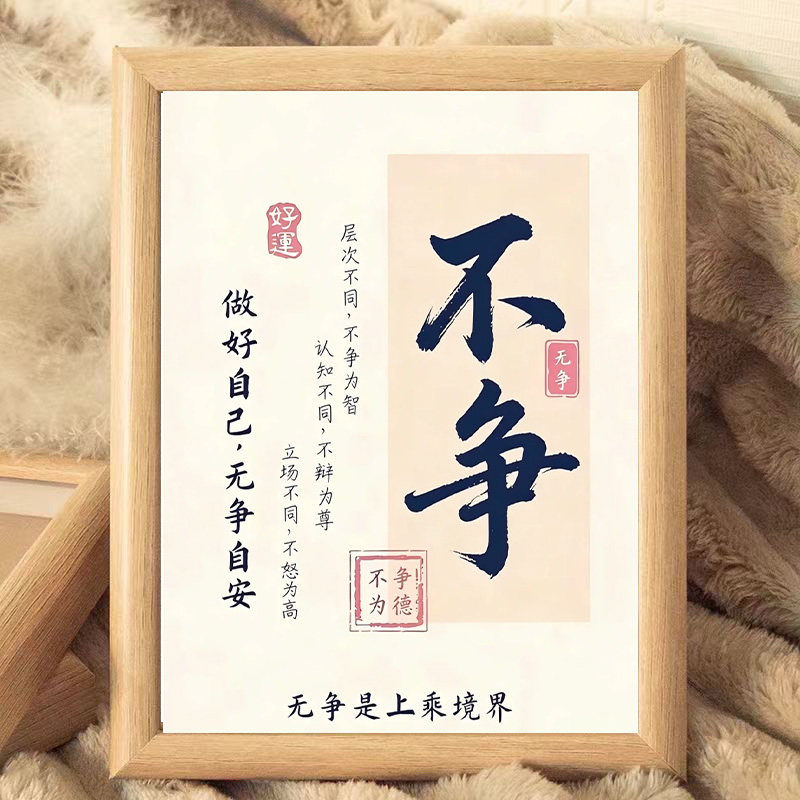 不争
无争
层次不同，不争为智
认知不同，不辩为尊
立场不同，不怒为高
好運
做好自己，无争自安
不争
为德
无争是上乘境界